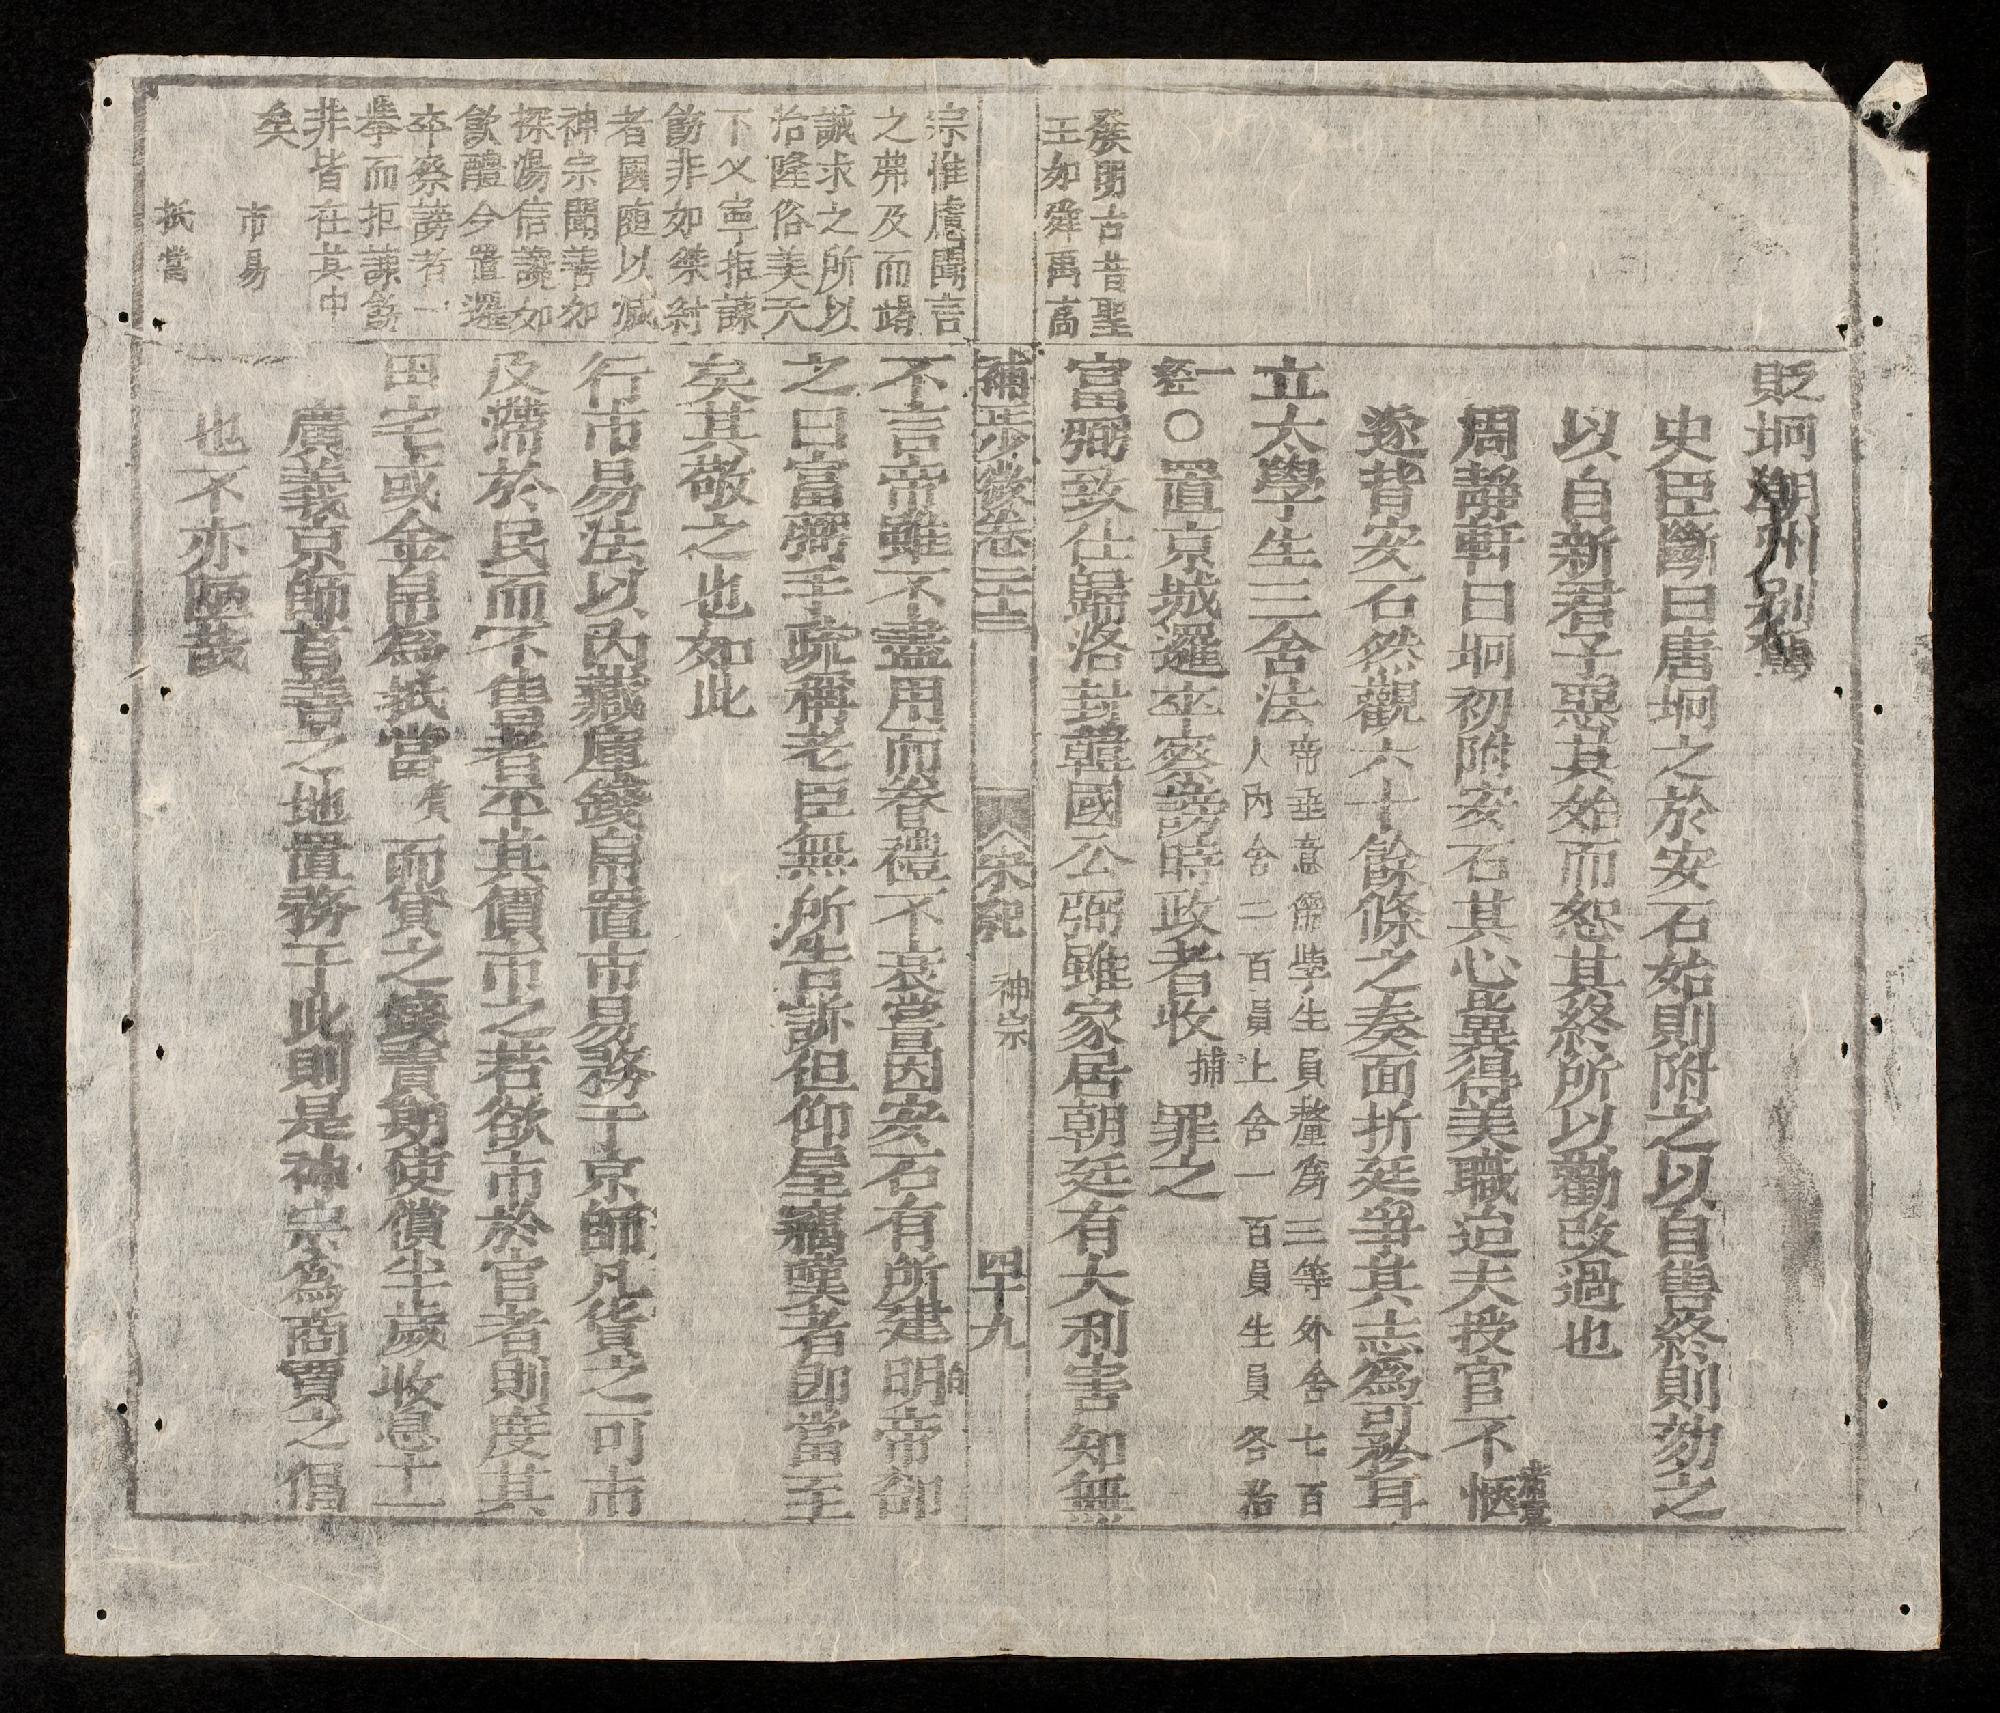 貶坰潮州別駕
史臣斷曰唐坰之於安石始則附之以自售終則劾之
以自新君子惡其始而恕其終所以勸改過也
周靜軒曰坰初附安石其心冀得美職迨夫授官不愜
遂背安石然觀六十餘條之奏面折廷爭其志為可矜耳
立太學生三舍法
帝垂意儒學生員釐為三等外舍七百
人內舍二百員上舍一百員生員各治
一經
〇置京城邏卒察謗時政者收捕罪之
發明古昔聖
王如舜禹高
富弼致仕歸洛封韓國公弼雖家居朝廷有大利害知無
補歩 卷二十三 宋紀 神宗 四十九
宗惟慮聞言
之弗及而竭
誠求之所以
治隆俗美天
下乂寧拒諫
飾非如桀紂
者國隨以滅
神宗聞善如
探湯信讒如
飲醴今置邏
卒察謗者一
舉而拒諫飾
非皆在其中
矣
不言帝雖不盡用而眷禮不衰嘗因安石有所建明帝卻
之曰富弼手疏稱老臣無所告訴但仰屋竊嘆者即當至
矣其敬之也如此
行市易法以內藏庫錢帛置市易務于京師凡貨之可市
及滯於民而不售者平其價市之若欲市於官者則度其
市易
田宅或金帛為抵當
而貸之錢責期使償半歲收息十一
抵當
廣義京師首善之地置務于此則是神宗為商賈之倡
也不亦陋哉